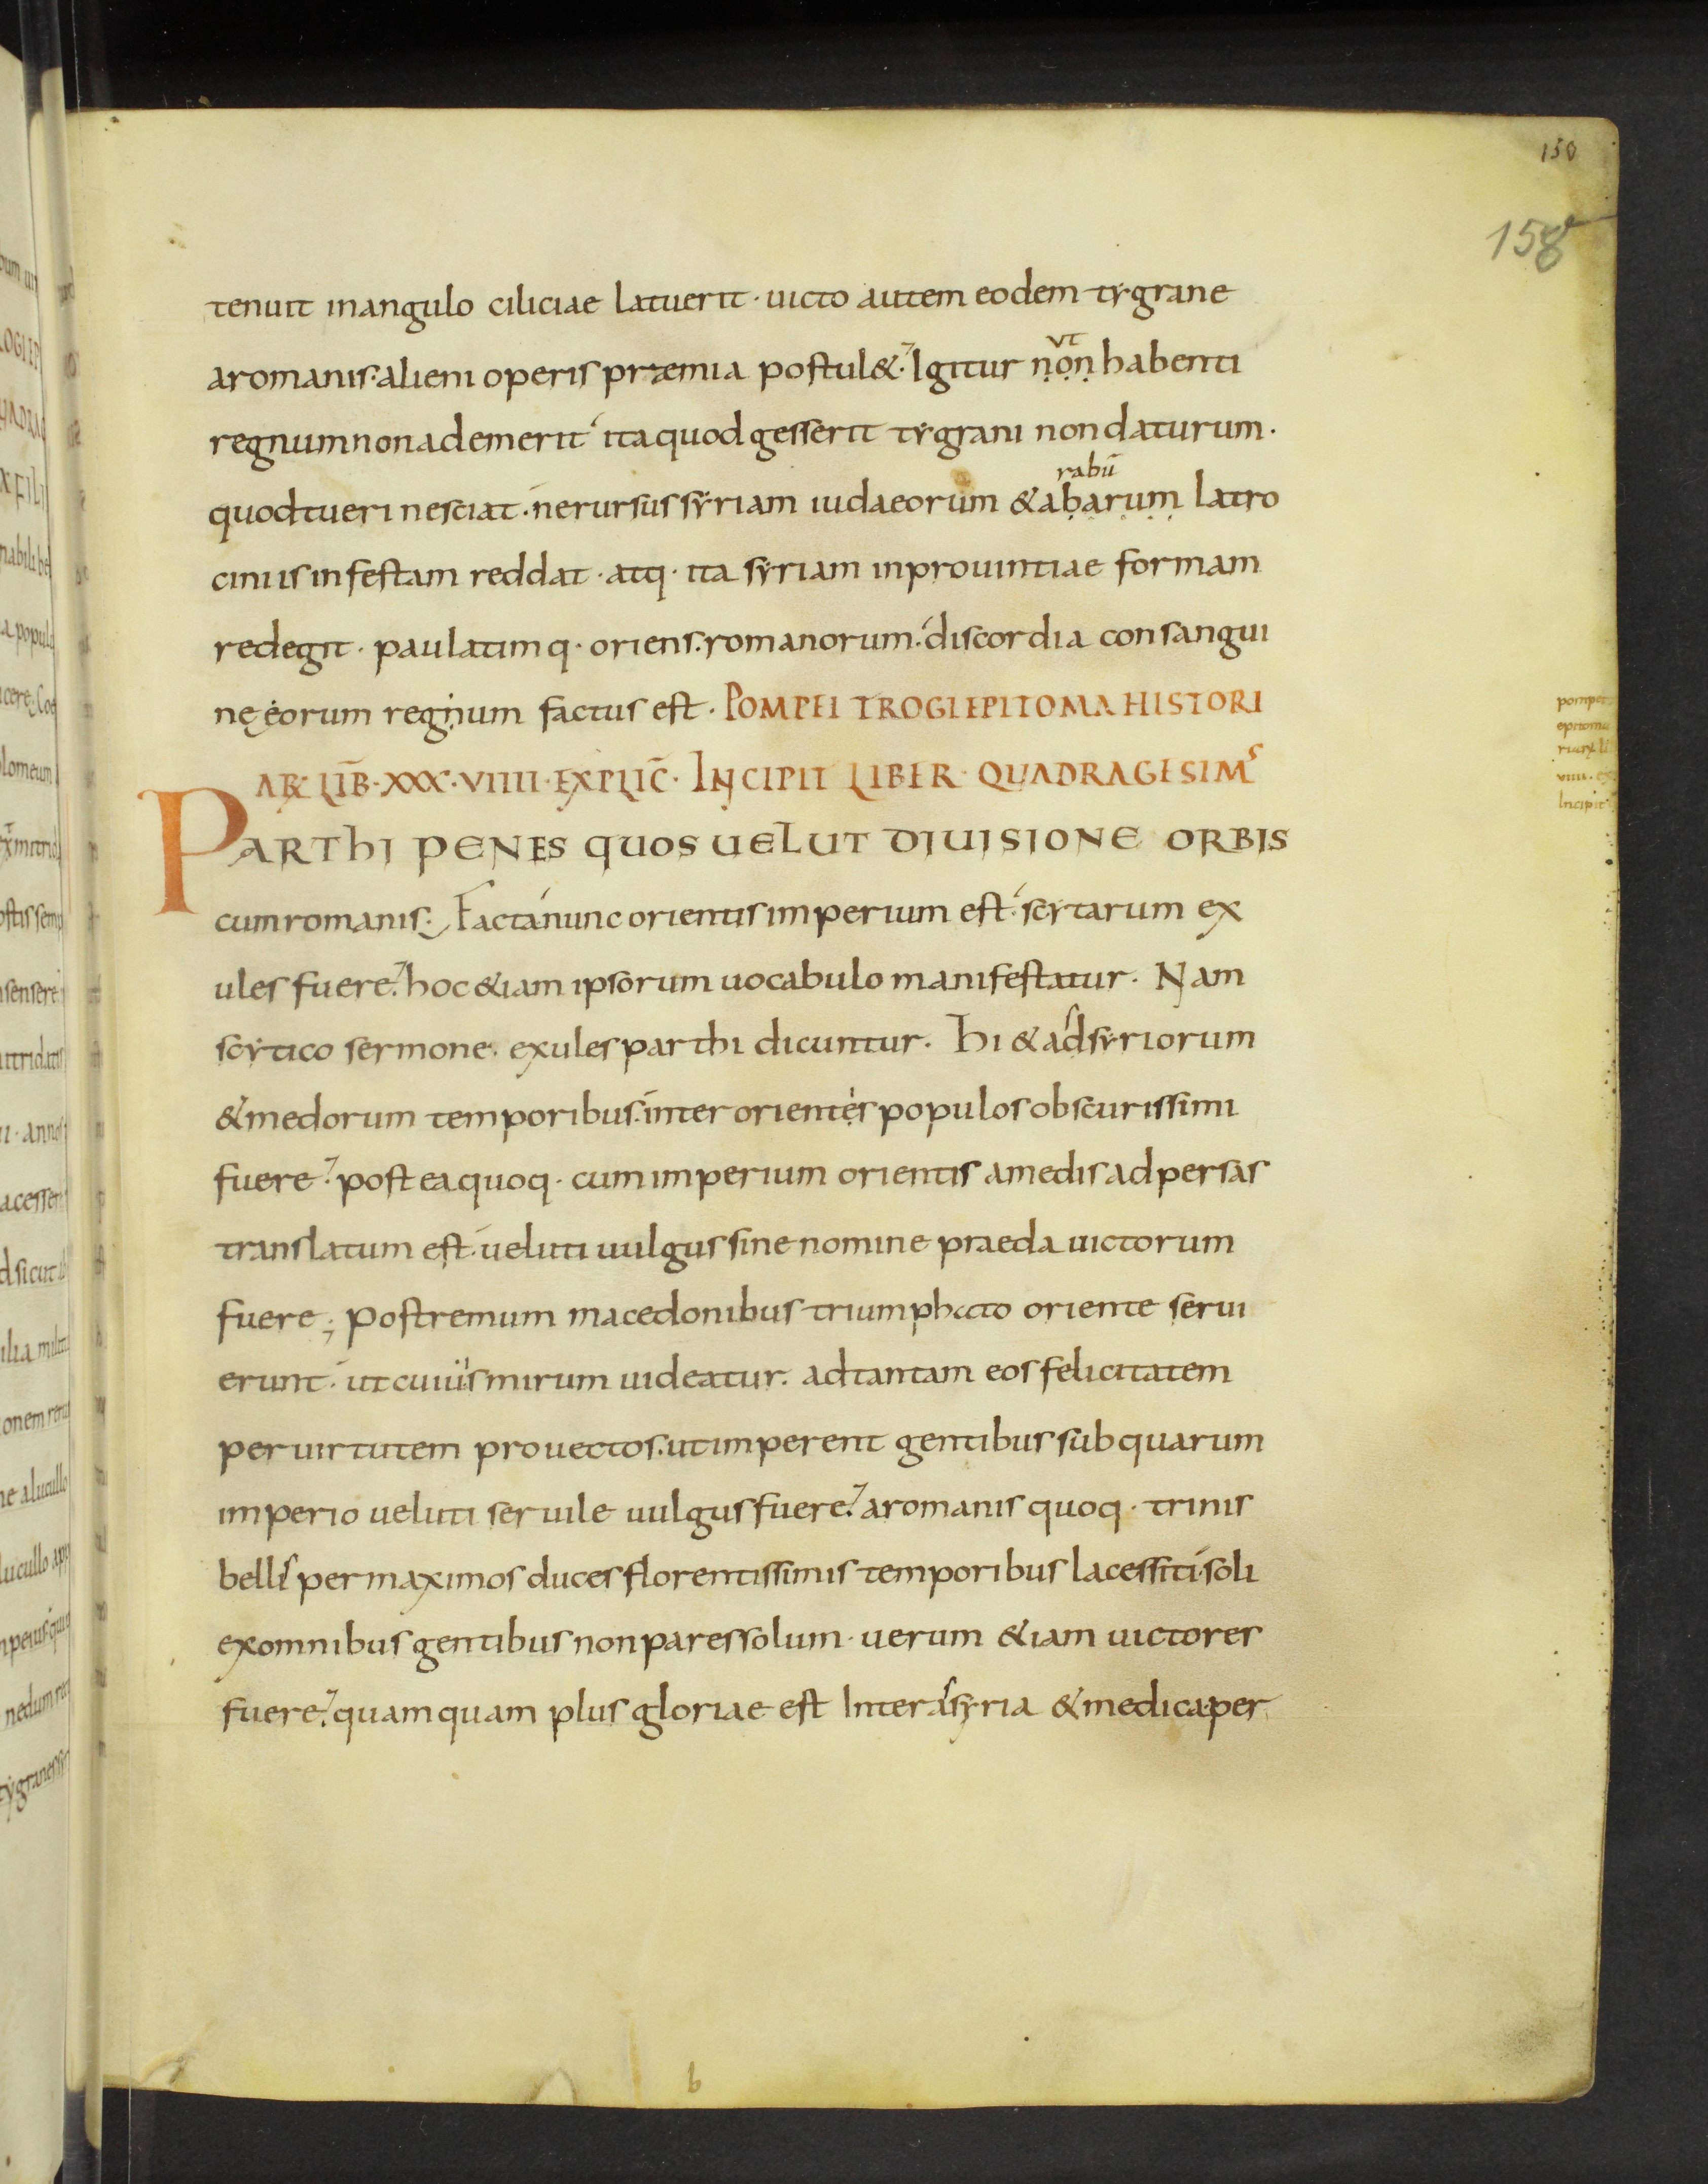 150
158
tenuit inangulo ciliciae latuerit · uicto autem eodem tygrane
aromanis · alieni operis praemia postul&· Igitur ṇọṇ habenti
vt
regnumnonademerit itaquod gesserit tygrani nondaturum ·
rabū
quodtueri nesciat · nerursus syriam iudaeorum &abarum latro
ciniis infestam reddat · atq · ita syriam inprouintiae formam
redegit · paulatimq · oriens · romanorum · discordia consangui
neẹorum regnum factus est · POMPEI TROGI EPITOMA HISTORI
ARꝜ LIB̄ · XXX · VIIII · EXPLIC̄ · INCIPIT LIBER QUADRAGESIMˢ
PARThI PENES QUOS UELUT DIUISIONE ORBIS
cumromanis · Facta nunc orientis imperium est · scytarum ex
ules fuere · hoc &iam ipsorum uocabulo manifestatur · Nam
scytico sermone · exules parthi dicuntur · Hi & adsyriorum
&medorum temporibus · inter orientẹs populos obscurissimi
fuere · postea quoq · cum imperium orientis amedis ad persas
translatum est · ueluti uulgus sine nomine praeda uictorum
fuere ; Postremum macedonibus triumphato oriente serui
erunt · ut cuiuis mirum uideatur · adtantam eos felicitatem
per uirtutem prouectos · ut imperent gentibus sub quarum
imperio ueluti seruile uulgus fuere · aromanis quoq · trinis
bellis per maximos duces florentissimis temporibus lacessiti · soli
exomnibus gentibus non pares solum · uerum &iam uictores
fuere · quamquam plus gloriae est Inter assyria &medica · per
b